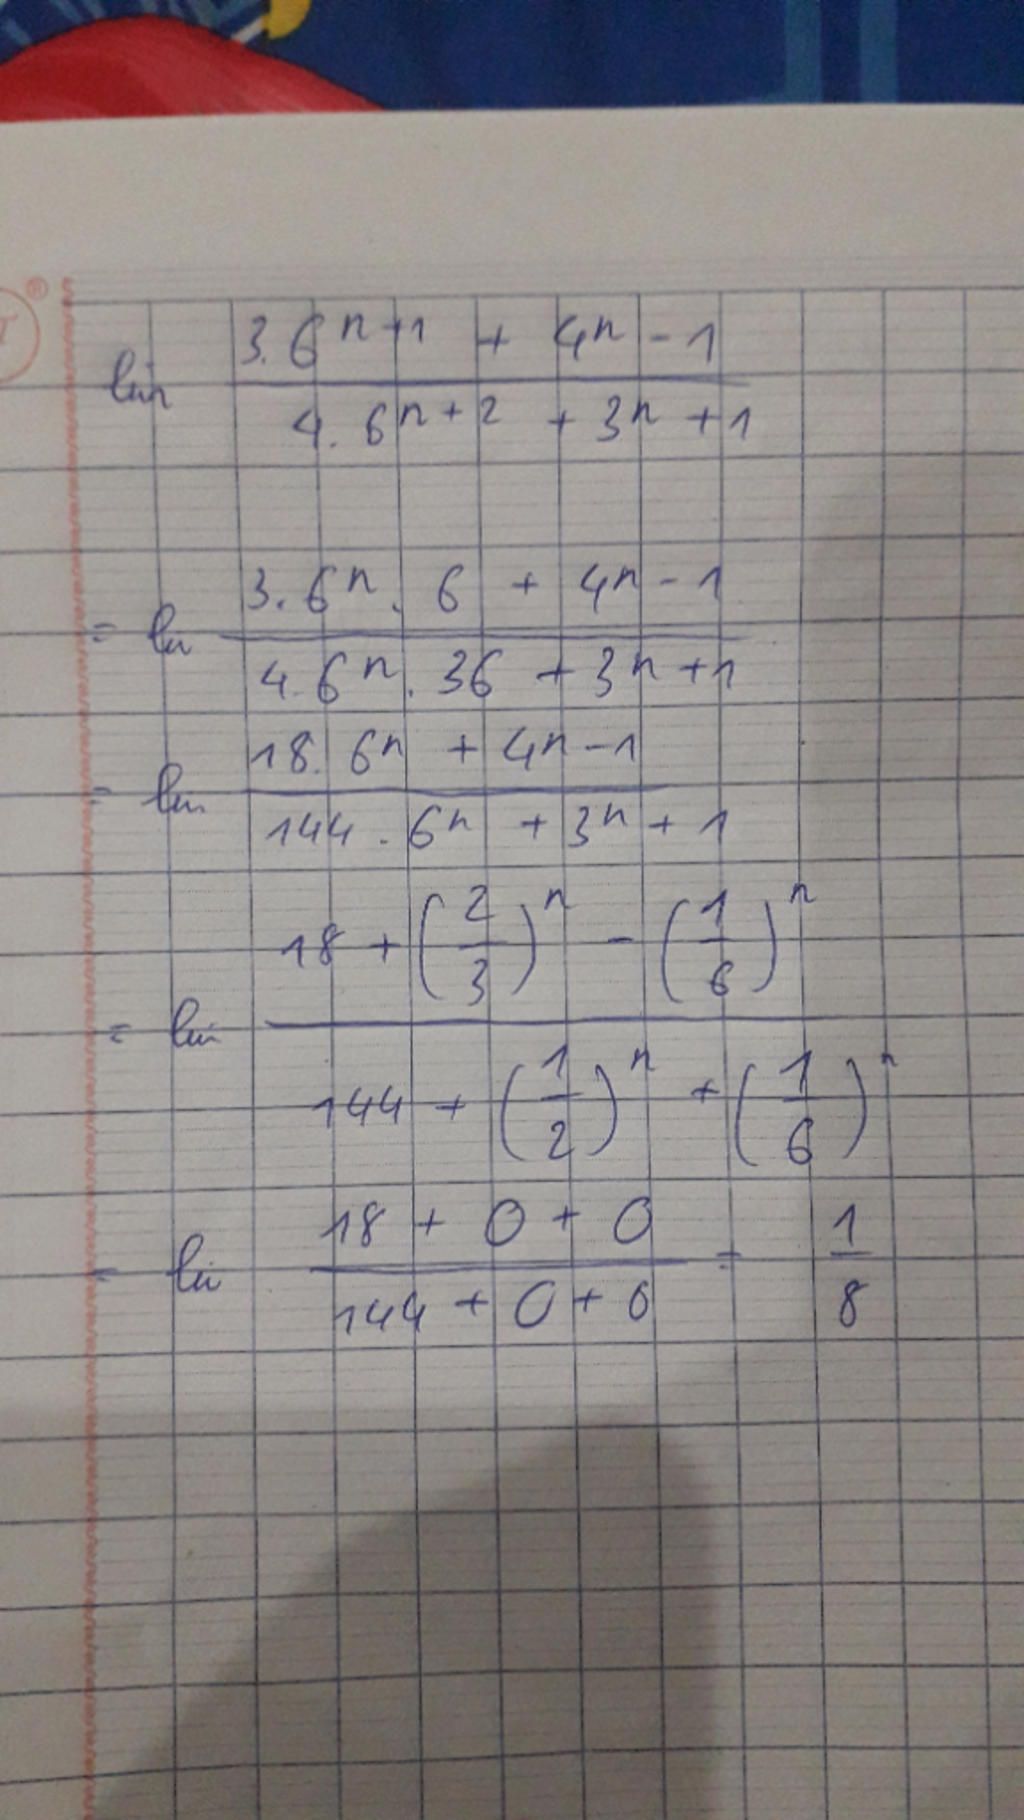 ®
lim \frac{3.6^{n+1} + 4^n - 1}{4.6^{n+2} + 3^n + 1}
= lim \frac{3.6^n.6 + 4^n - 1}{4.6^n.36 + 3^n + 1}
= lim \frac{18.6^n + 4^n - 1}{144.6^n + 3^n + 1}
= lim \frac{18 + (\frac{2}{3})^n - (\frac{1}{6})^n}{144 + (\frac{1}{2})^n + (\frac{1}{6})^n}
= lim \frac{18 + 0 + 0}{144 + 0 + 0} = \frac{1}{8}